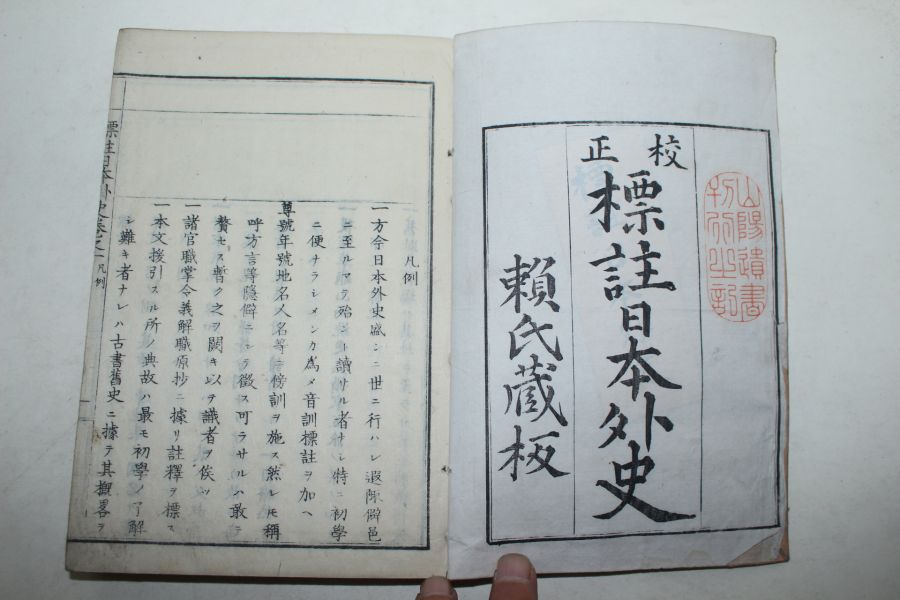 校正
標註日本外史
賴氏藏板
山陽遺書
刊行之記
凡例
一方今日本外史盛ンニ世ニ行ハレ遐陬僻邑
ニ至ルマテ殆ント讀サル者ナシ特ニ初學
ニ便ナラシメンカ為メ音訓標註ヲ加ヘ
尊號年號地名人名等ニ傍訓ヲ施ス然レモ稱
呼方言等隱僻ニシテ徴ス可ラサルハ敢テ
贅セス暫ク之ヲ闕キ以テ識者ヲ俟ツ
一諸官職掌令義解職原抄ニ據リ註釋ヲ標ス
一本文援引スル所ノ典故ハ最モ初學ノ了解
シ難キ者ナレハ古書舊史ニ據テ其概畧ヲ
標註日本外史卷之一凡例